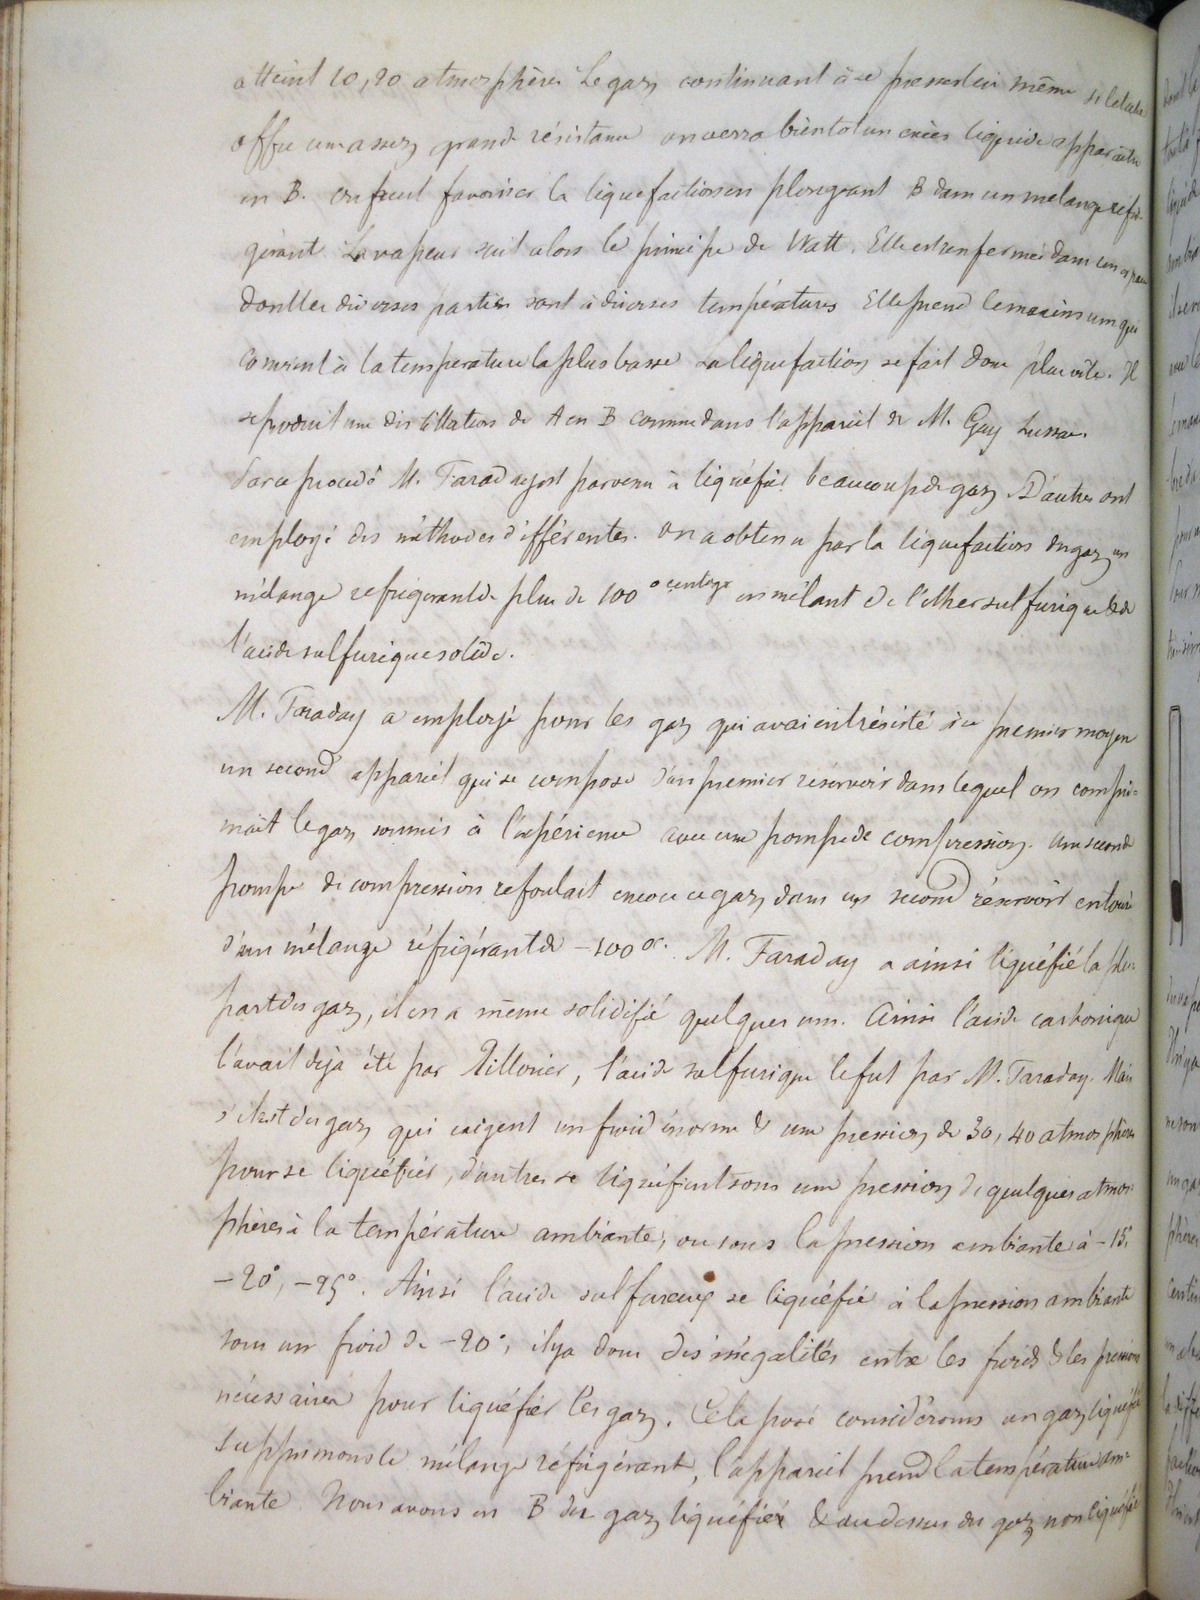 atteint 10, 20 atmosphères. Le gaz continuant à se presser lui même si le tube
offre une assez grande résistance on verra bientôt un excès liquide apparaître
en B. on peut favoriser la liquefaction en plongeant B dans un melange refri-
gérant. La vapeur suit alors le principe de Watt. Elle est renfermée dans un espace
dont les diverses parties sont à diverses températures Elle prend le maximum qui
convient à la temperature la plus basse La liquefaction se fait donc plus vite. Il
se produit une distillation de A en B comme dans l'appareil de M. Gay Lussac.
Par ce procédé M. Faraday est parvenu à liquéfier beaucoup de gaz. D'autres ont
employé des méthodes différentes. on a obtenu par la liquefaction du gaz un
mélange refrigerant de plus de 100° centogr en mêlant de l'ether sulfurique & de
l'acide sulfurique solide.
M. Faraday a employé pour les gaz qui avaient résisté à ce premier moyen
un second appareil qui se compose d'un premier réservoir dans lequel on compri=
mait le gaz soumis à l'expérience avec une pompe de compression. une seconde
pompe de compression refoulait encore ce gaz dans un second réservoir entouré
d'un mélange réfrigérant de -100°c. M. Faraday a ainsi liquéfié la plu-
part des gaz, il en a même solidifié quelques uns. Ainsi l'acide carbonique
l'avait déja été par Tillorier, l'acide sulfurique le fut par M. Faraday. Mais
s'il est des gaz qui exigent un froid énorme & une pression de 30, 40 atmosphères
pour se liquéfier, d'autres se liquéfient sous une pression de quelques atmos-
phères à la température ambiante, ou sous la pression ambiante à -15°,
-20°, -25°. Ainsi l'acide sulfureux se liquéfie à la pression ambiante
sous un froid de -20°, il y a donc des inégalités entre les froids & les pressions
nécessaires pour liquéfier les gaz. Cela posé considérons un gaz liquéfié
supprimons le mélange réfrigérant, l'appareil prend la température am-
biante. Nous avons en B du gaz liquéfié & au dessus du gaz non liquéfié